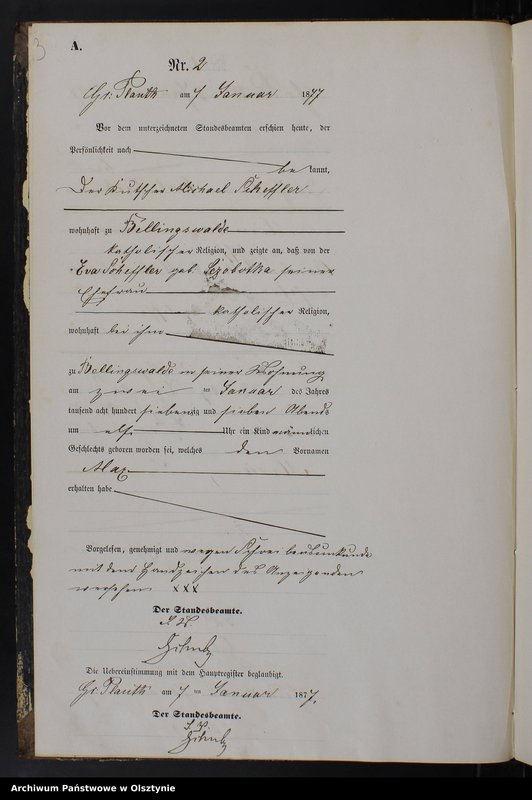 3
A.
Nr. 2
Gr. Plauth am 7 Januar 1877
Vor dem unterzeichneten Standesbeamten erschien heute, der
Persönlichkeit nach
be kannt,
Der Kutscher Michael Scheffler
wohnhaft zu Bellingswalde
katholischer Religion, und zeigte an, daß von der
Eva Scheffler geb. seiner
Ehefrau
katholischer Religion,
wohnhaft bei ihm
zu Bellingswalde in seiner Wohnung
am zwei ten Januar des Jahres
tausend acht hundert siebenzig und sieben Abends
um elf Uhr ein Kind männlichen
Geschlechts geboren worden sei, welches den Vornamen
Max
erhalten habe.
Vorgelesen, genehmigt und wegen Schreibensunkunde
mit dem Handzeichen des Anzeigenden
versehen XXX
Der Standesbeamte.
Die Uebereinstimmung mit dem Hauptregister beglaubigt.
Gr. Plauth am 7 ten Januar 1877.
Der Standesbeamte.
Archiwum Państwowe w Olsztynie